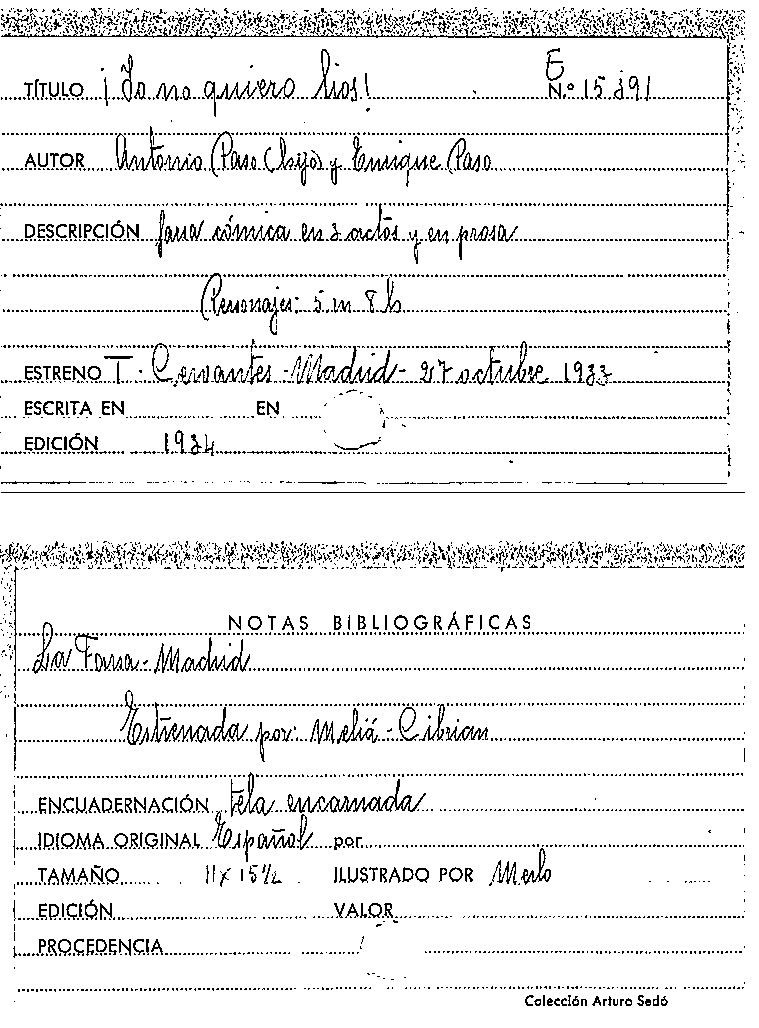 E
TÍTULO ¡Yo no quiero lios! N.º 15391
AUTOR Antonio Paso (hijo) y Enrique Paso
DESCRIPCIÓN farsa cómica en 3 actos y en prosa
Personajes: 5 m 8 h
ESTRENO T. Cervantes - Madrid - 27 octubre 1933
ESCRITA EN EN
EDICIÓN 1934
NOTAS BIBLIOGRÁFICAS
La Farsa - Madrid
Estrenada por: Meliá - Cibrian
ENCUADERNACIÓN tela encarnada
IDIOMA ORIGINAL Español por
TAMAÑO 11 x 15½ ILUSTRADO POR Merlo
EDICIÓN VALOR
PROCEDENCIA
Colección Arturo Sedó